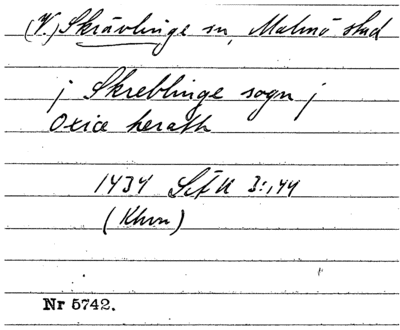 (V.) Skrävlinge sn, Malmö stad
j Skreblinge sogn j
Oxice herath
1434 SÄU 3:144
(Khvn)
Nr 5742.